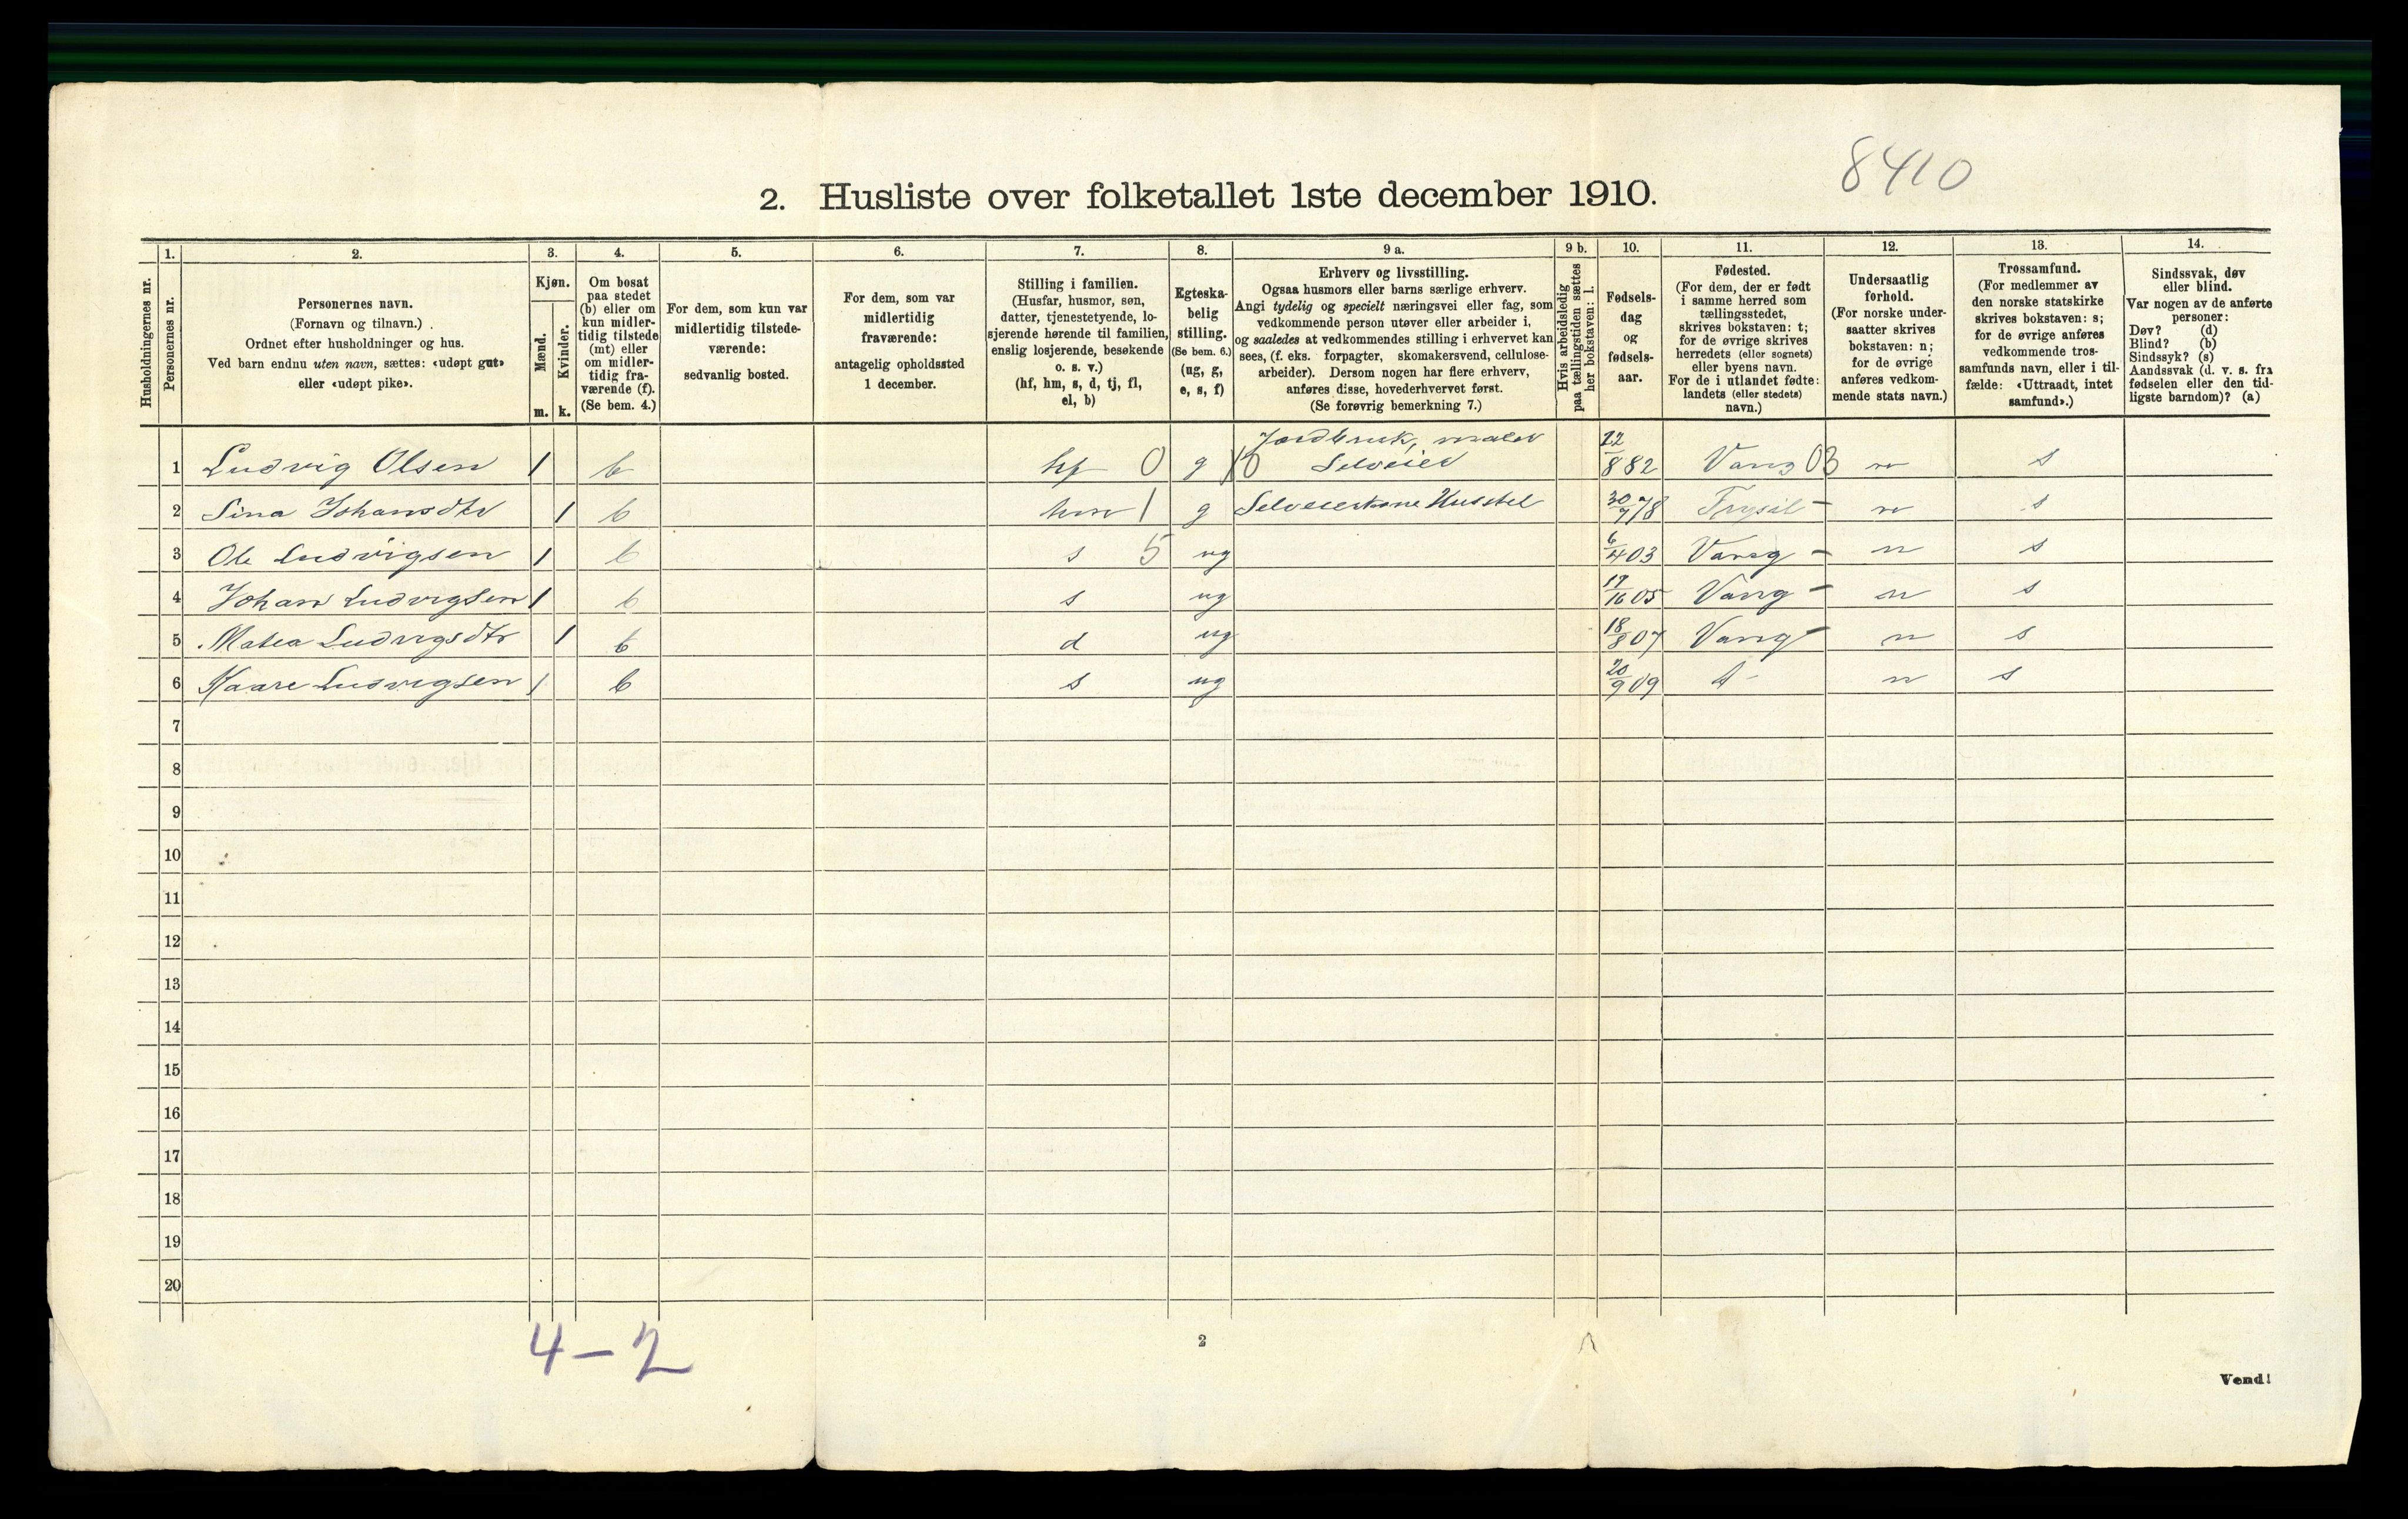 8410
2. Husliste over folketallet 1ste december 1910.
1. 2. 3. 4. 5. 6. 7. 8. 9 a. 9 b. 10. 11. 12. 13. 14.
Husholdningernes nr.
Personernes nr.
Personernes navn.
(Fornavn og tilnavn.)
Ordnet efter husholdninger og hus.
Ved barn endnu uten navn, sættes: «udøpt gut»
eller «udøpt pike».
Kjøn.
Mænd.
Kvinder.
m. k.
Om bosat
paa stedet
(b) eller om
kun midler-
tidig tilstede
(mt) eller
om midler-
tidig fra-
værende (f).
(Se bem. 4.)
For dem, som kun var
midlertidig tilstede-
værende:
sedvanlig bosted.
For dem, som var
midlertidig
fraværende:
antagelig opholdssted
1 december.
Stilling i familien.
(Husfar, husmor, søn,
datter, tjenestetyende, lo-
sjerende hørende til familien,
enslig losjerende, besøkende
o. s. v.)
(hf, hm, s, d, tj, fl,
el, b)
Egteska-
belig
stilling.
(Se bem. 6.)
(ug, g,
e, s, f)
Erhverv og livsstilling.
Ogsaa husmors eller barns særlige erhverv.
Angi tydelig og specielt næringsvei eller fag, som
vedkommende person utøver eller arbeider i,
og saaledes at vedkommendes stilling i erhvervet kan
sees, (f. eks. forpagter, skomakersvend, cellulose-
arbeider). Dersom nogen har flere erhverv,
anføres disse, hovederhvervet først.
(Se forøvrig bemerkning 7.)
Hvis arbeidsledig
paa tællingstiden sættes
her bokstaven: l.
Fødsels-
dag
og
fødsels-
aar.
Fødested.
(For dem, der er født
i samme herred som
tællingsstedet,
skrives bokstaven: t;
for de øvrige skrives
herredets (eller sognets)
eller byens navn.
For de i utlandet fødte:
landets (eller stedets)
navn.)
Undersaatlig
forhold.
(For norske under-
saatter skrives
bokstaven: n;
for de øvrige
anføres vedkom-
mende stats navn.)
Trossamfund.
(For medlemmer av
den norske statskirke
skrives bokstaven: s;
for de øvrige anføres
vedkommende tros-
samfunds navn, eller i til-
fælde: «Uttraadt, intet
samfund».)
Sindssvak, døv
eller blind.
Var nogen av de anførte
personer:
Døv? (d)
Blind? (b)
Sindssyk? (s)
Aandssvak (d. v. s. fra
fødselen eller den tid-
ligste barndom)? (a)
Jordbruk, maler
1 Ludvig Olsen 1 b hf 0 g Selveier 22/8 82 Vang 03 n s
2 Sina Johansdtr 1 b hm 1 g Selveierkone Husstel 30/7 78 Trysil - n s
3 Ole Ludvigsen 1 b s 5 ug 6/4 03 Vang - n s
4 Johan Ludvigsen 1 b s ug 05 Vang - n s
5 Matea Ludvigsdtr 1 b d ug 18/8 07 Vang - n s
6 Kaare Ludvigsen 1 b s ug 20/9 09 t - n s
7
8
9
10
11
12
13
14
15
16
17
18
19
20
4 - 2
2
Vend!